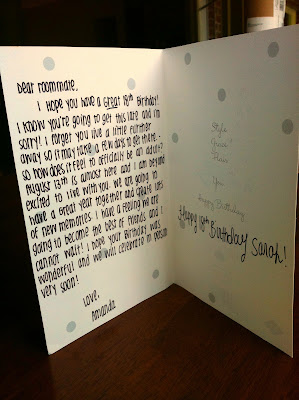 Dear roommate,
I hope you have a great 18th Birthday!
I know you're going to get this late and I'm
sorry! I forget you live a little further
away so it may take a few days to get there.
So how does it feel to officially be an adult?
August 13th is almost here and I am beyond
excited to live with you. We are going to
have a great year together and create lots
of new memories. I have a feeling we are
going to become the best of friends and I
cannot wait! I hope your birthday was
wonderful and we will celebrate in person
very soon!
Love,
Amanda
Style
Grace
You
Happy Birthday
Happy 18th Birthday Sarah!